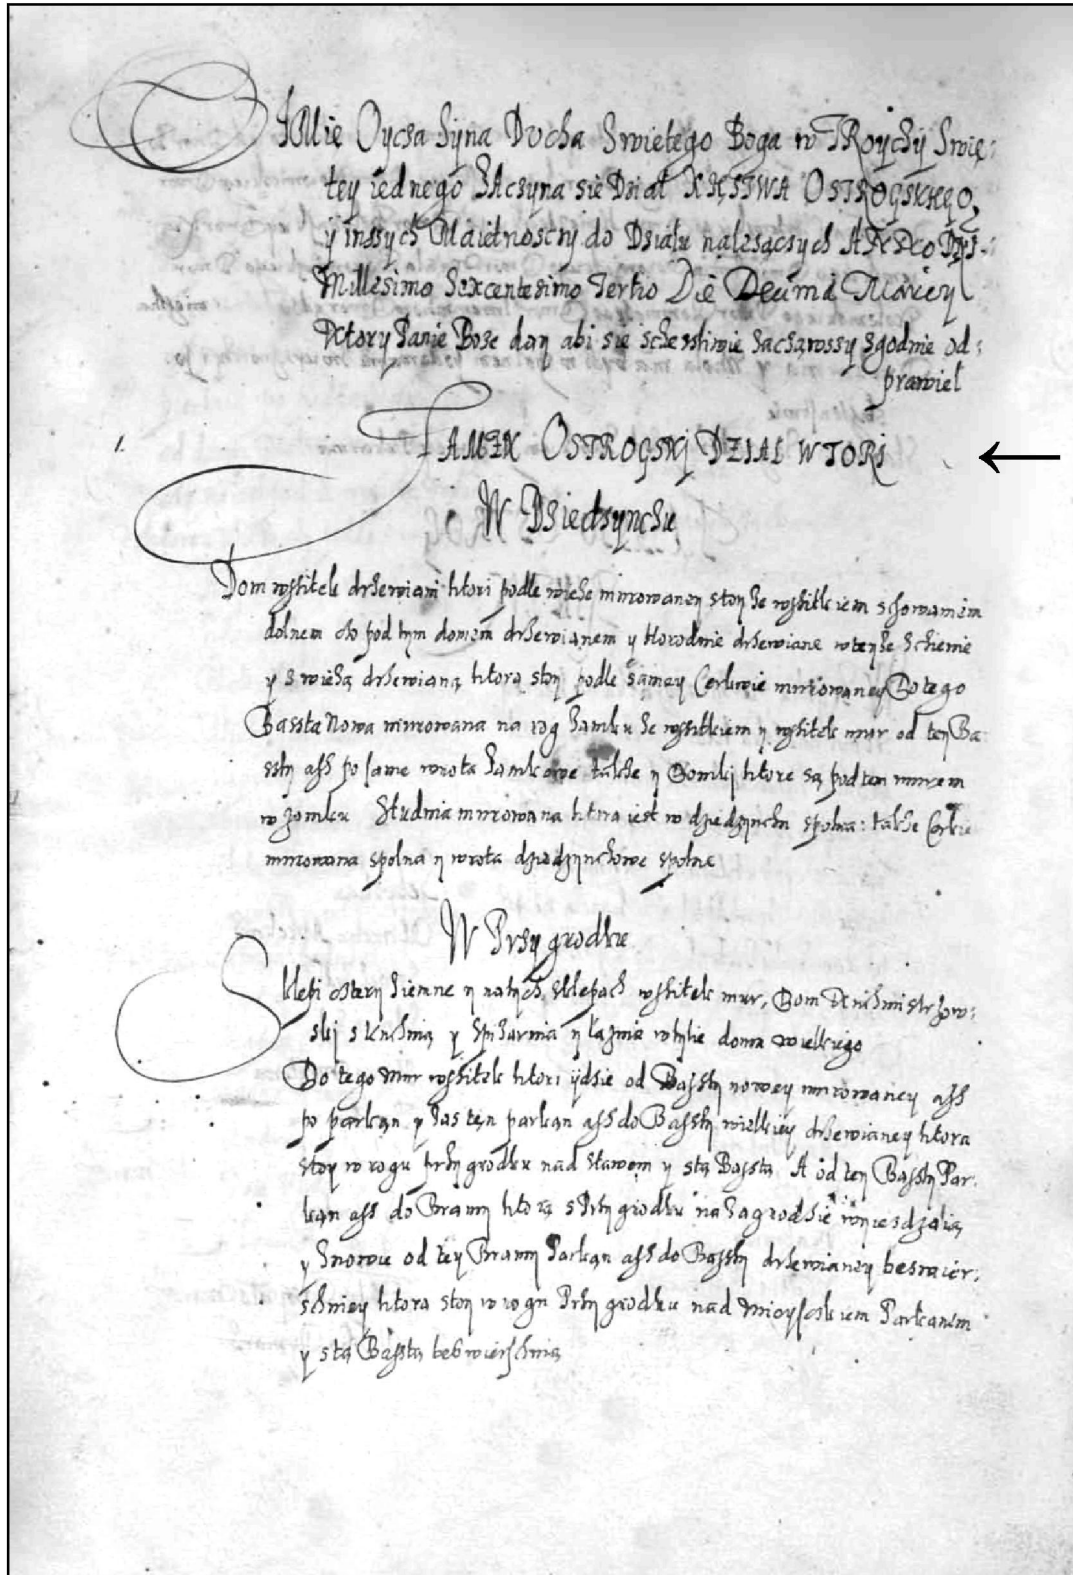 IMię Oycza Syna Ducha Swiętego Boga w TRoyczy Swię:
tey iednego ZAczyna się Dział XięSTWA OSTROGSKIEGO,
y inszych Maiętnosczy do Działu nalezączych
Millesimo Sexcentesimo Tertio Die Decima Marcy
Ktory Panie Boze day abi się sczesliwie zacząwszy zgodnie od:
prawieł
1. ZAMEK OSTROGSKi DZIAL WTORi
W Dziedzynczu
Dom wszitek drzewiani ktori podle wieze murowaney stoy ze wszitkiem schowaniem
dolnem co pod tym domem drzewianem y Horodnie drzewiane wteyze scienie
y z wiezą drzewianą ktora stoy podle samey Cerkwie murowaney Do tego
Baszta Nowa murowana na rog Zamku ze wszitkiem y wszitek mur od tey Ba
szty asz po same wrota Zamkowe takze y Domki ktore są pod tem murem
w zamku Studnia murowana ktora iest w dziedzynczu spolna: takze Cerkie
murowana spolna y wrota dziedzynczowe spolne
W Przygrodku
Sklepi cztery ziemne y natych sklepach wszitek mur, Dom Kuchmistrzow:
skij z kuchnią y Spizarnia y łaznia wtylie domu wielkiego
Do tego Mur wszitek ktori ijdzie od Baszty nowey murowaney asz
po parkan y zas ten parkan asz do Baszty wielkiey drzewianey ktora
stoy w rogu przygrodku nad stawem y stą Basztą A od tey Baszty Par:
kan asz do Bramy ktorą s Przygrodku na Zagrodzie wyiezdzaią
y znowu od tey Bramy Parkan asz do Baszty drzewianey bes wier:
schniey ktora stoy w rogu Przygrodku nad Mieyskiem Parkanem
y stą Basztą bes wierschnią